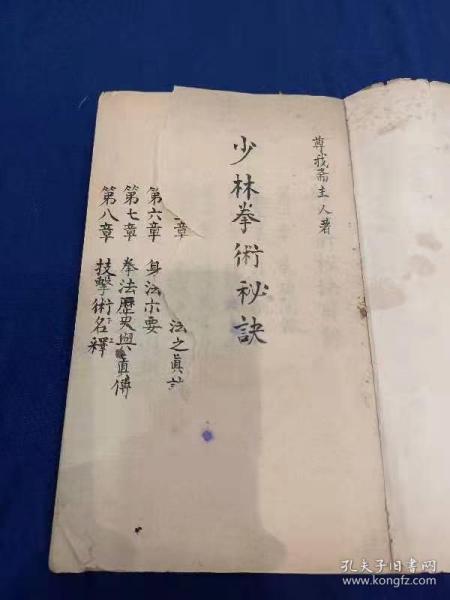 尊我齋主人著
少林拳術秘訣
章 法之真
第六章 身法示要
第七章 拳法歷史與真傳
第八章 技擊術名釋
孔夫子旧书网
www.kongfz.com